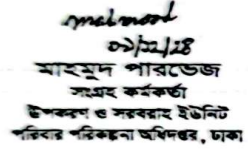 মাহমুদ পারভেজ
সংগ্রহ কর্মকর্তা
উপকরণ ও সরবরাহ ইউনিট
পরিবার পরিকল্পনা অধিদপ্তর, ঢাকা